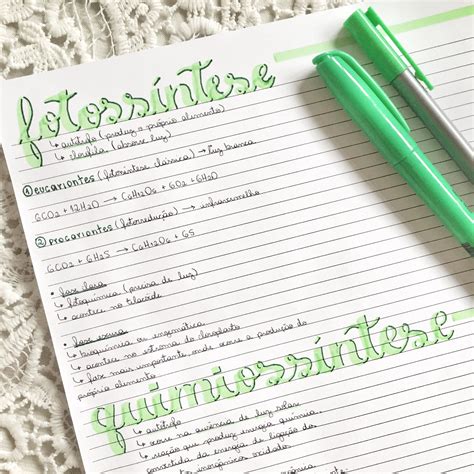 fotossíntese
↳ autótrofo (produz o próprio alimento)
↳ clorofila (absorve luz)
① eucariontes (fotossíntese clássica) → luz branca
6CO2 + 12H2O → C6H12O6 + 6O2 + 6H2O
② procariontes (fotorredução) → infravermelho
6CO2 + 6H2S → C6H12O6 + 6S
• fase clara
↳ fotoquímica (precisa de luz)
↳ acontece no tilacóide
• fase escura
↳ bioquímica ou enzimática
↳ acontece no estroma do cloroplasto
↳ fase mais importante onde ocorre a produção do
próprio alimento
quimiossíntese
↳ autótrofo
↳ ocorre na ausência de luz solar
↳ reação que produz energia química,
convertida da energia de ligação dos
inorgânicos oxidados